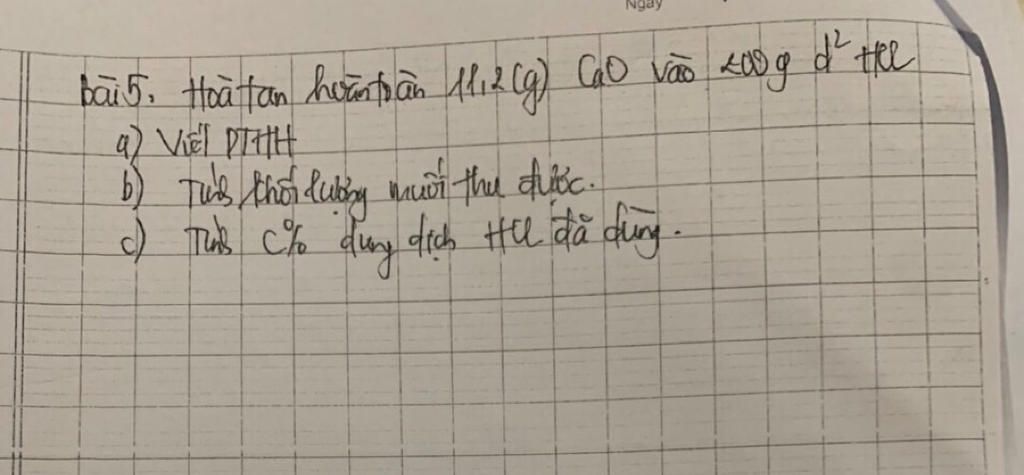 Ngày
Bài 5. Hoà tan hoàn toàn 11,2 (g) CaO vào 200g d² HCl
a) Viết PTHH
b) Tính khối lượng muối thu được.
c) Tính C% dung dịch HCl đã dùng.